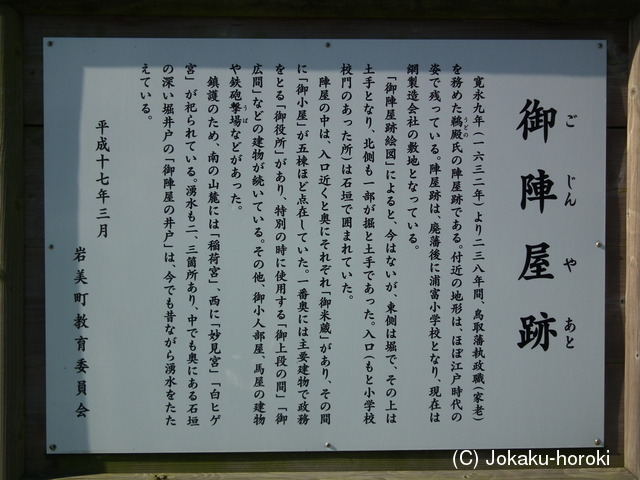 御陣屋跡
ご じん や あと
寛永九年(一六三二年)より二三八年間、鳥取藩執政職(家老)
を務めた鵜殿氏の陣屋跡である。付近の地形は、ほぼ江戸時代の
うどの
姿で残っている。陣屋跡は、廃藩後に浦富小学校となり、現在は
鋼製造会社の敷地となっている。
「御陣屋跡絵図」によると、今はないが、東側は堀で、その上は
土手となり、北側も一部が掘と土手であった。入口(もと小学校
校門のあった所)は石垣で囲まれていた。
陣屋の中は、入口近くと奥にそれぞれ「御米蔵」があり、その間
に「御小屋」が五棟ほど点在していた。一番奥には主要建物で政務
をとる「御役所」があり、特別の時に使用する「御上段の間」「御
広間」などの建物が続いている。その他、御小人部屋、馬屋の建物
や鉄砲撃場などがあった。
うば
鎮護のため、南の山麓には「稲荷宮」、西に「妙見宮」「白ヒゲ
宮」が祀られている。湧水も二、三箇所あり、中でも奥にある石垣
の深い堀井戸の「御陣屋の井戸」は、今でも昔ながら湧水をたた
えている。
平成十七年三月
岩美町教育委員会
(C) Jokaku-horoki